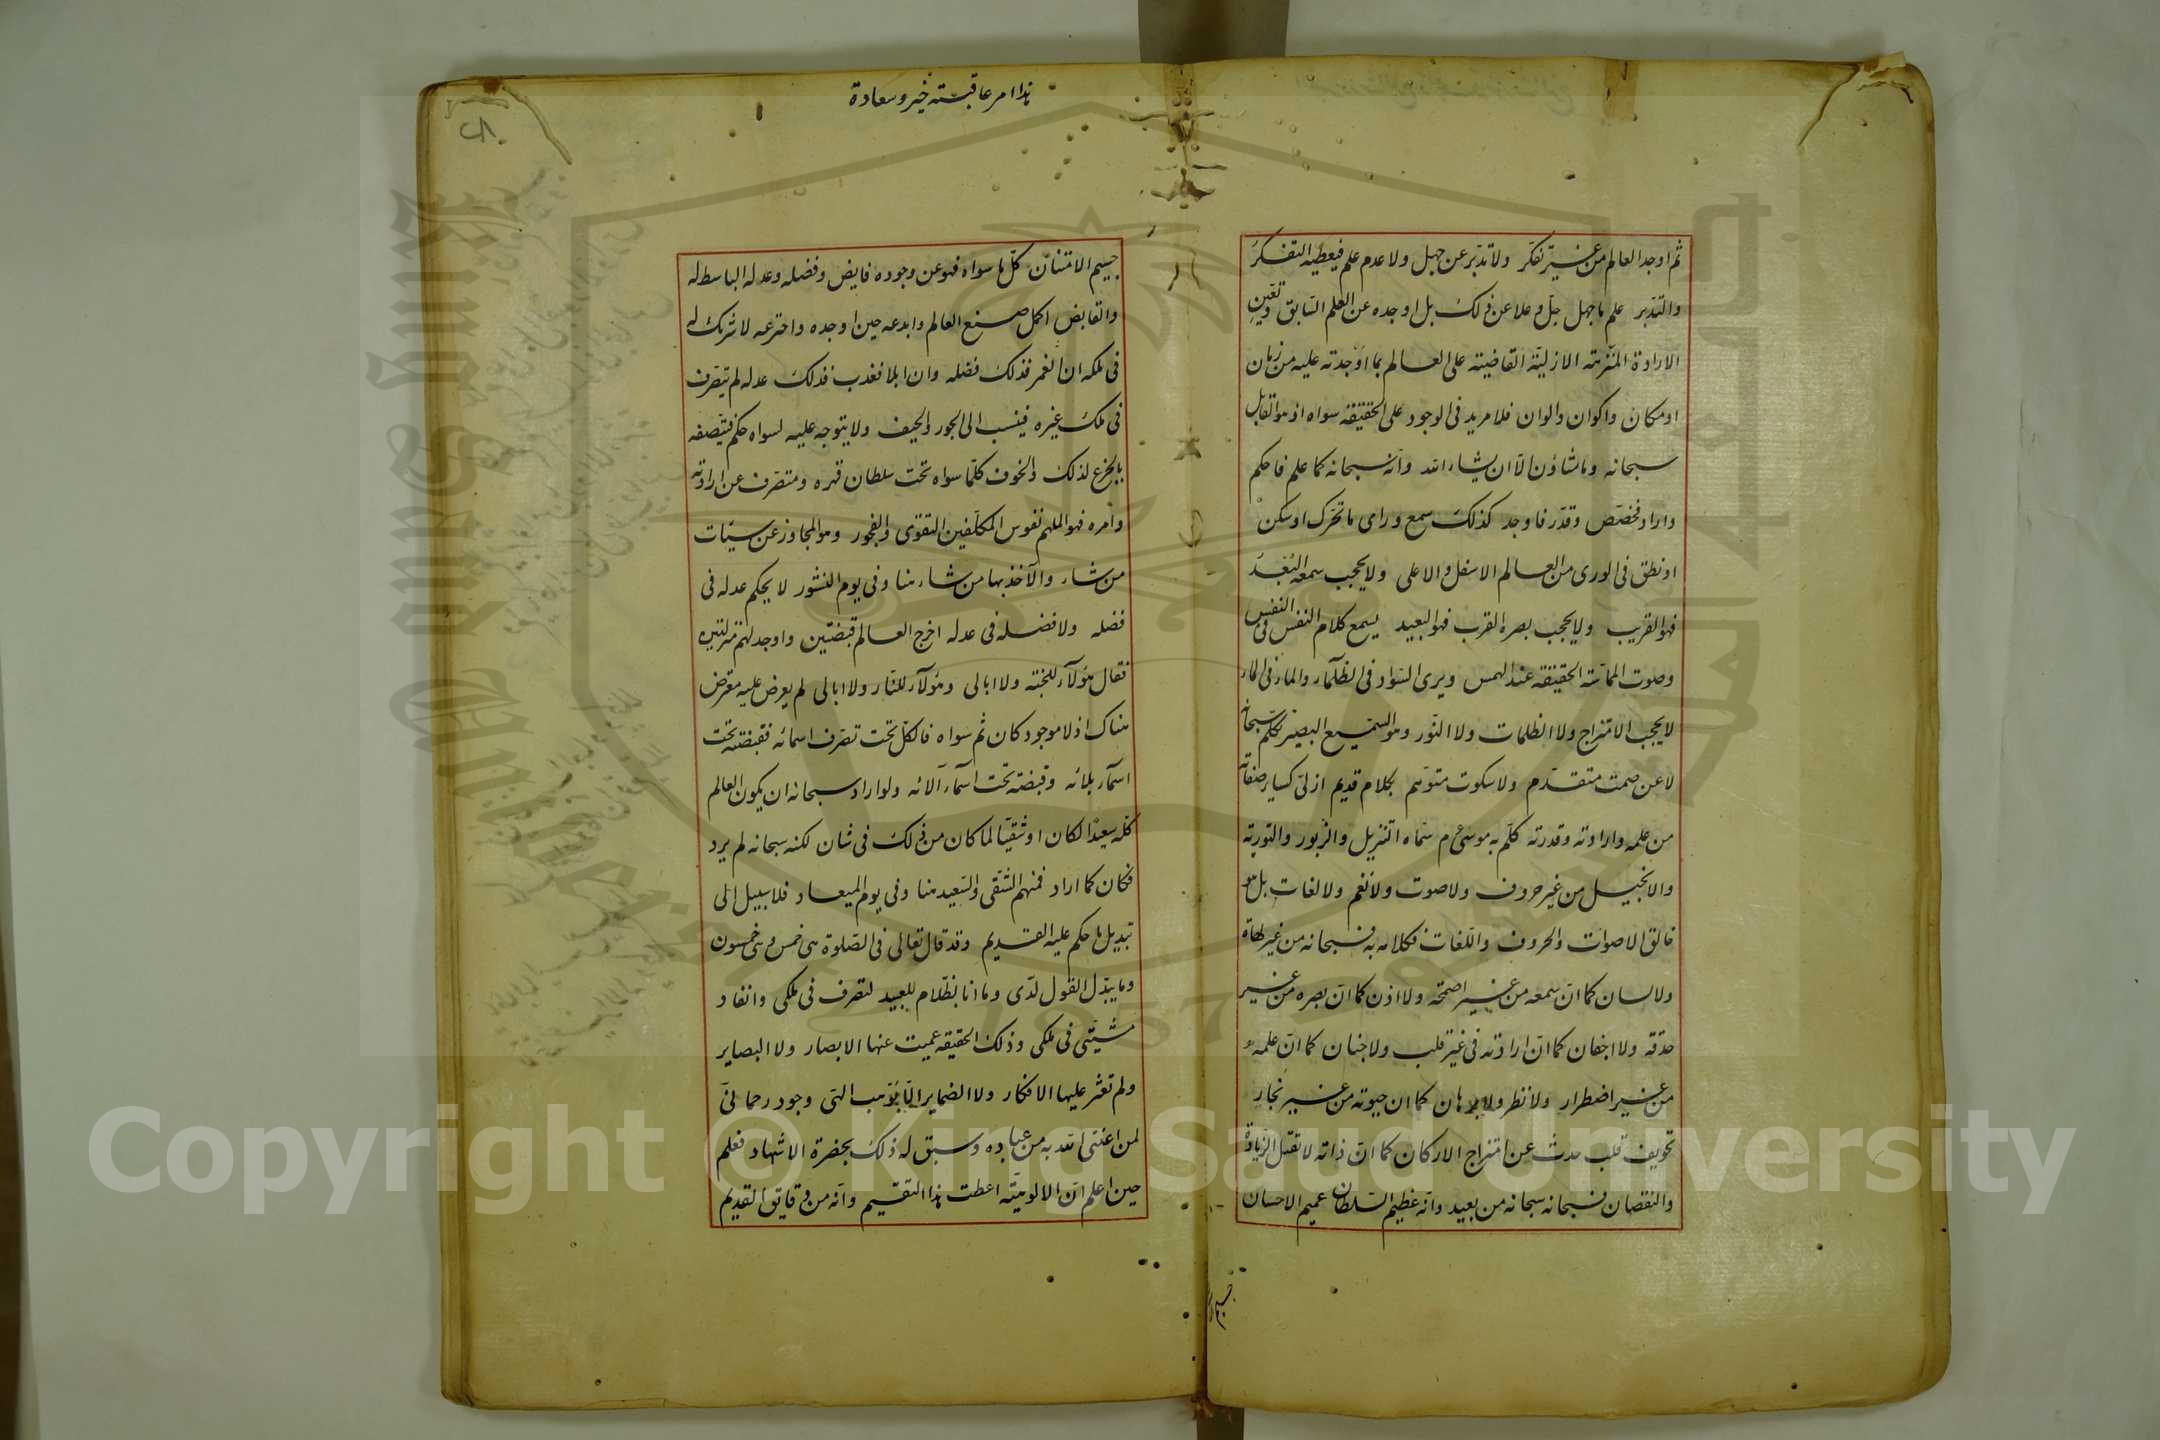 ثم اوجد العالم من غير تفكر ولا تدبر عن جهل ولا عدم علم فيعطيه التفكر
والتدبر علم ما جهل جلّ وعلا عن ذلك بل اوجده عن العلم السابق وتعين
الارادة المنزهة الازلية القاضية على العالم بما اوجدته عليه من زمان
او مكان واكوان والوان فلا مريد فى الوجود على الحقيقة سواه اذ هو القايل
سبحانه وما تشاؤن الا ان يشاء الله وانه سبحانه كما علم فاحكم
واراد فخصص وقدر فاوجد كذلك سمع وراى ما تحرك او سكن
او نطق فى الورى من العالم الاسفل والاعلى ولا يحجب سمعه البعد
فهو القريب ولا يحجب بصره القرب فهو البعيد يسمع كلام النفس فى النفس
وصوت المماسة الحقيقة عند الهمس ويرى السواد فى الظلماء والماء فى الماء
لا يحجب الامتزاج ولا الظلمات ولا النور وهو السميع البصير تكلم سبحانه
لا عن صمت متقدم ولا سكوت متوهم بكلام قديم ازلى كساير صفاته
من علمه وارادته وقدرته كلم به موسى عم سماه التنزيل والزبور والتورية
والانجيل من غير حروف ولا صوت ولا نغم ولا لغات بل هو
خالق الاصوات والحروف واللغات فكلامه به فسبحانه من غير لهاة
ولا لسان كما ان سمعه من غير اصمخة ولا اذن كما ان بصره من غير
حدقة ولا اجفان كما ان ارادته فى غير قلب ولا جنان كما ان علمه
من غير اضطرار ولا نظر ولا برهان كما ان حيوته من غير بخار
تجويف قلب حدث عن امتزاج الاركان كما ان ذاته لا تقبل الزيادة
والنقصان فسبحانه سبحانه من بعيد وانه عظيم السلطان عميم الاحسان
جسيم
هذا امر عاقبته خير وسعادة
٢٨
جسيم الامتنان كل ما سواه فهو عن وجوده فايض وفضله وعدله الباسط له
والقابض اكمل صنع العالم وابدعه حين اوجده واخترعه لا شريك له
فى ملكه ان انعم فذلك فضله وان ابلا فعذب فذلك عدله لم يتصرف
فى ملك غيره فينسب الى الجور والحيف ولا يتوجه عليه لسواه حكم فيتصفه
بالجزع لذلك والخوف كلما سواه تحت سلطان قهره ومتصرف عن ارادته
وامره فهو الملهم نفوس المكلفين التقوى والفجور وهو المجاوز عن سيّات
من شاء والآخذ بها من شاء هنا وفى يوم النشور لا يحكم عدله فى
فضله ولا فضله فى عدله اخرج العالم قبضتين واوجد لهم منزلتين
فقال هؤلآء للجنة ولا ابالى وهؤلآء للنار ولا ابالى لم يعرض عليه معرض
هناك اذ لا موجود كان ثم سواه فالكل تحت تصرف اسمائه فقبضة تحت
اسمآء بلائه وقبضة تحت اسمآء آلائه ولو اراد سبحانه ان يكون العالم
كله سعيدا لكان او شقيا لما كان من ذلك فى شان لكنه سبحانه لم يرد
فكان كما اراد فمنهم الشقى والسعيد هنا وفى يوم الميعاد فلا سبيل الى
تبديل ما حكم عليه القديم وقد قال تعالى فى الصلوة هى خمس وهى خمسون
وما يبدل القول لدى وما انا بظلام للعبيد لتصرفى فى ملكى وانفاد
مشيتى فى ملكى وذلك الحقيقة عميت عنها الابصار ولا البصاير
ولم تعثر عليها الافكار ولا الضماير الا بوهب الهى وجود رحمانى
لمن اعتنى الله به من عباده وسبق له ذلك بحضرة الاشهاد فعلم
حين اعلم ان الالوهية اعطت هذا التقسيم وانه من دقايق القديم